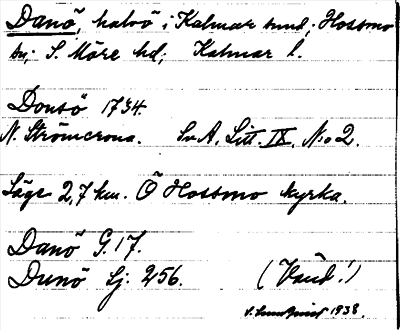 Danö, halvö i Kalmar sund, Hossmo
sn; S. Möre hd; Kalmar l.
Donsö 1734.
N. Strömcrona. SvA. Litt. IX No 2.
Läge 2,7 km. Ö Hossmo kyrka.
Danö G. 17.
Dunö Sj. 256. (Vsŭd!)
S. Lundqvist 1938.